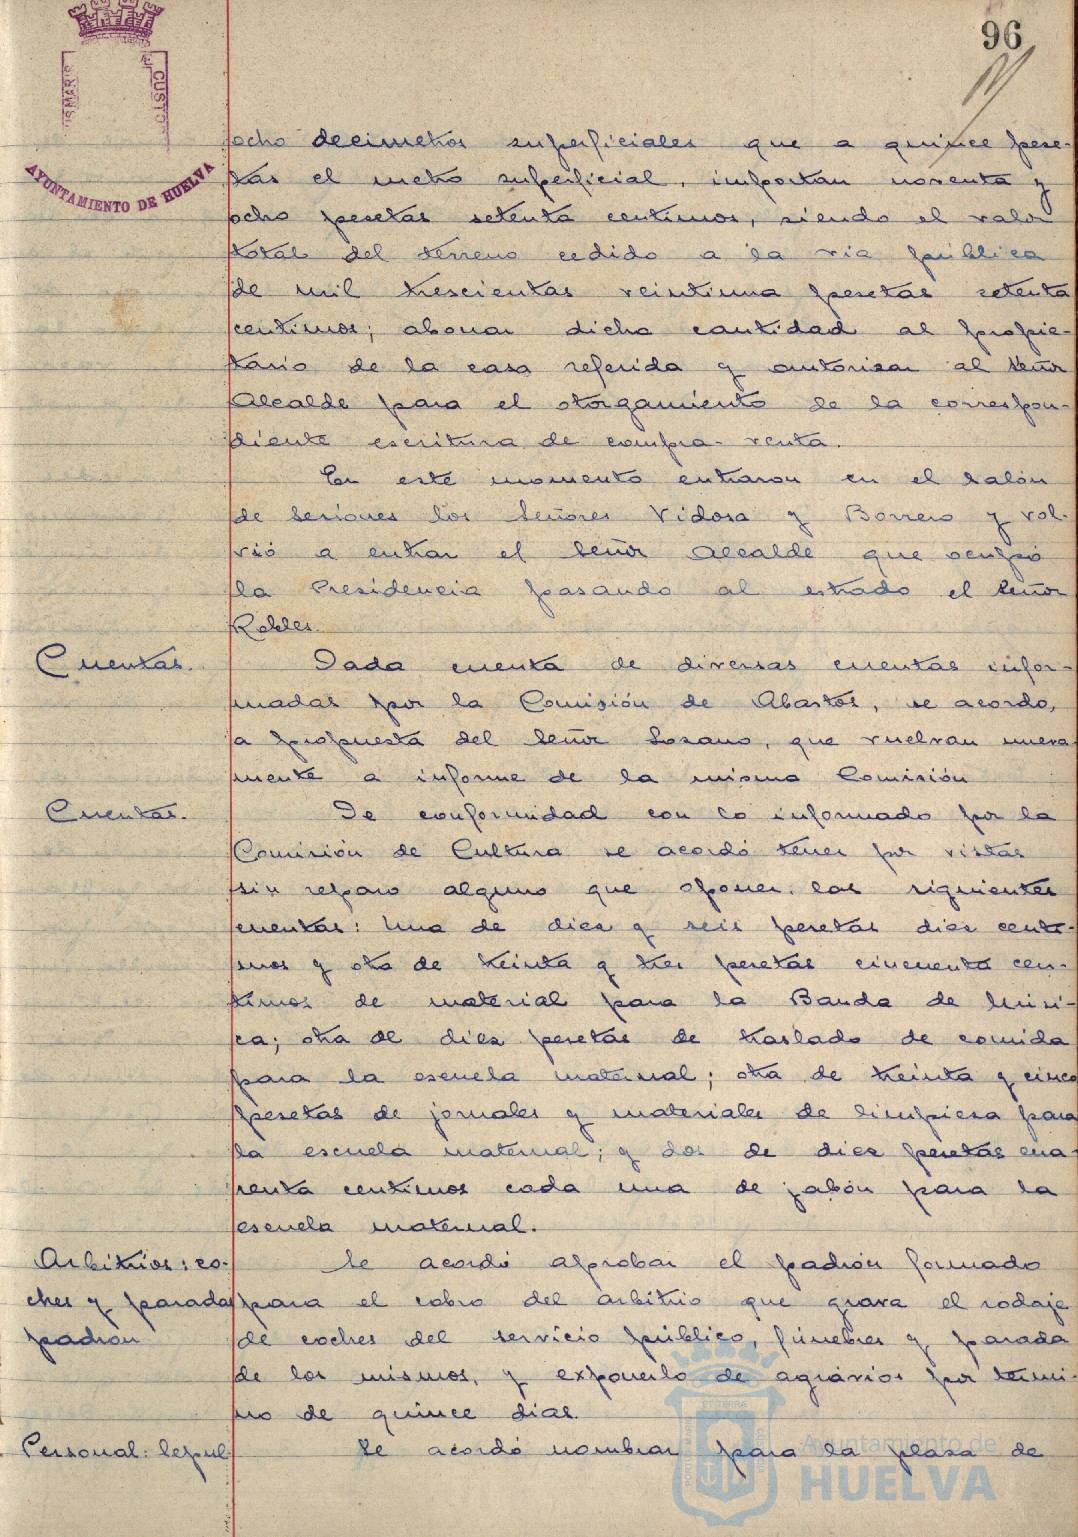 96
AYUNTAMIENTO DE HUELVA
ocho decimetros superficiales que a quince pese-
tas el metro superficial, importan noventa y
ocho pesetas setenta centimos, siendo el valor
total del terreno cedido a la via pública
de mil trescientas veintiuna pesetas setenta
centimos; abonar dicha cantidad al propie-
tario de la casa referida y autorizar al Señor
Alcalde para el otorgamiento de la correspon-
diente escritura de compra-venta.
En este momento entraron en el salón
de sesiones los Señores Vidosa y Borrero y vol-
vió a entrar el Señor Alcalde que ocupó
la Presidencia pasando al estrado el Señor
Robles.
Cuentas.
Dada cuenta de diversas cuentas infor-
madas por la Comisión de Abastos, se acordo,
a propuesta del Señor Lozano, que vuelvan nueva
mente a informe de la misma Comisión
Cuentas.
De conformidad con lo informado por la
Comisión de Cultura se acordó tener por vistas
sin reparo alguno que oponer las siguientes
cuentas: Una de diez y seis pesetas diez centi-
mos y otra de treinta y tres pesetas cincuenta cen-
timos de material para la Banda de Músi-
ca; otra de diez pesetas de traslado de comida
para la escuela maternal; otra de treinta y cinco
pesetas de jornales y materiales de limpieza para
la escuela maternal; y dos de diez pesetas cua-
renta centimos cada una de jabón para la
escuela maternal.
Arbitrios: co-
ches y parada
padron
Se acordó aprobar el padrón formado
para el cobro del arbitrio que grava el rodaje
de coches del servicio público, fúnebres y parada
de los mismos, y exponerlo de agravios por termi-
no de quince dias.
Personal: Sepul-
Se acordó nombrar para la plaza de
Ayuntamiento de
HUELVA